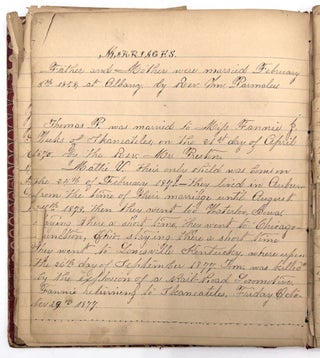 MARRIAGES.
Father and Mother were married February
8th 1854, at Albany by Rev. Wm. Parmalee
Thomas P. was married to Miss Fannie J.
of Skaneateles, on the 21st day of April
1870. by the Rev. Mr. Preston.
Mattie V. Their only child was born on
the 24th of February 1871. They lived in Auburn
from the time of their marriage until August
1875, then they went to Waterloo, Iowa
a short time, they went to Chicago
Ohio staying there a short time
They went to Louisville Kentucky where upon
the 26th day of September 1877. Tom was killed
by the explosion of a Rail Road Locomotive
Fannie returning to Skaneateles, Friday Octo-
ber 29th 1877